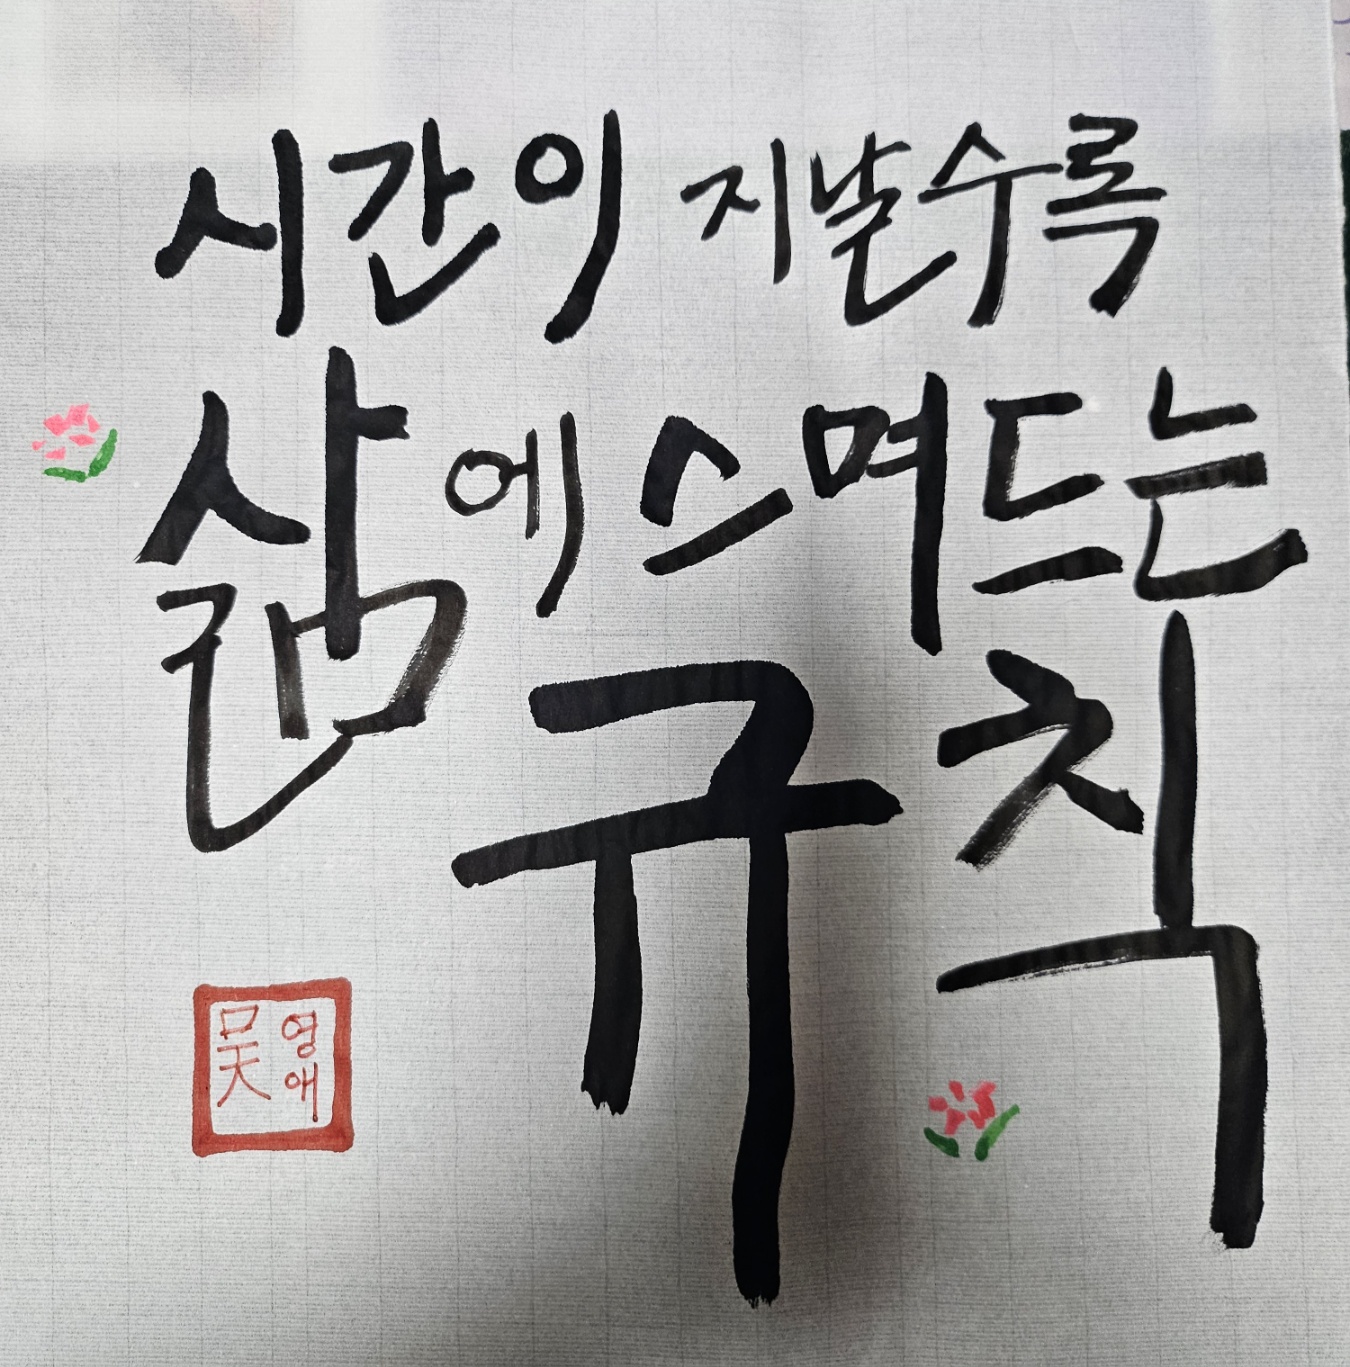 시간이 지날수록
삶에 스며드는
규칙
吴 영애